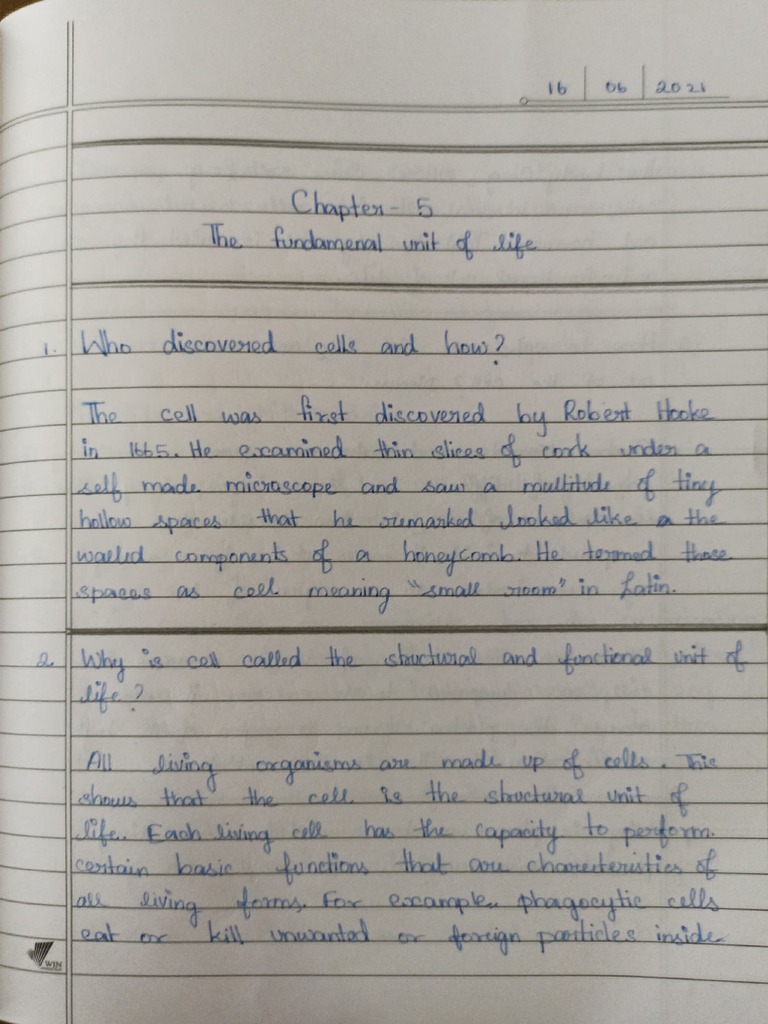 16 | 06 | 2021
Chapter - 5
The fundamenal unit of life
1. Who discovered cells and how?
The cell was first discovered by Robert Hooke
in 1665. He examined thin slices of cork under a
self made microscope and saw a multitude of tiny
hollow spaces that he remarked looked like a the
walled components of a honeycomb. He termed those
spaces as cell meaning "small room" in Latin.
2. Why is cell called the structural and functional unit of
life?
All living organisms are made up of cells. This
shows that the cell is the structural unit of
life. Each living cell has the capacity to perform
certain basic functions that are charecteristics of
all living forms. For example, phagocytic cells
eat or kill unwanted or foreign particles inside
WIN